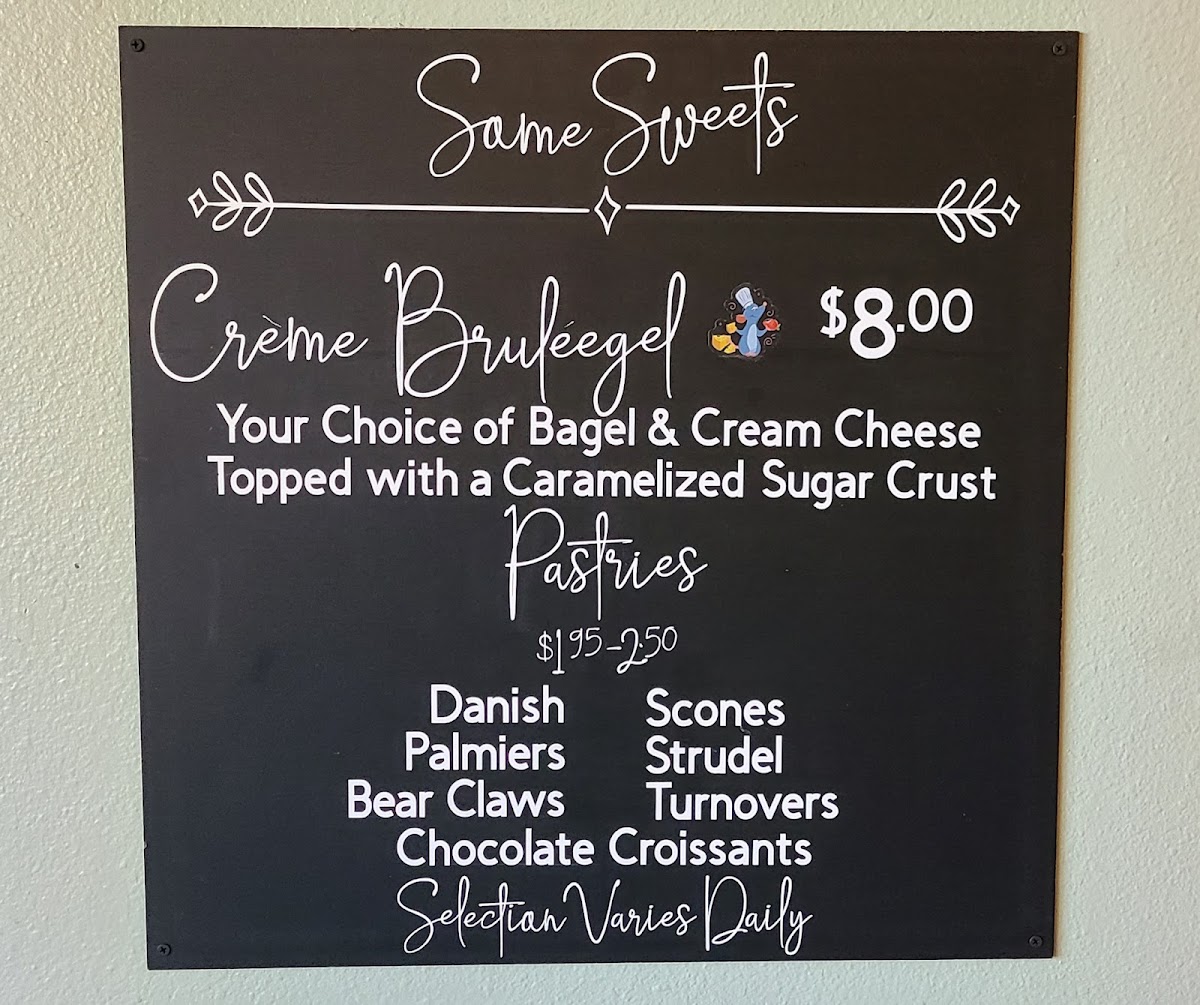 Some Sweets
Crème Bruléegel $8.00
Your Choice of Bagel & Cream Cheese
Topped with a Caramelized Sugar Crust
Pastries
$1.95-2.50
Danish Scones
Palmiers Strudel
Bear Claws Turnovers
Chocolate Croissants
Selection Varies Daily